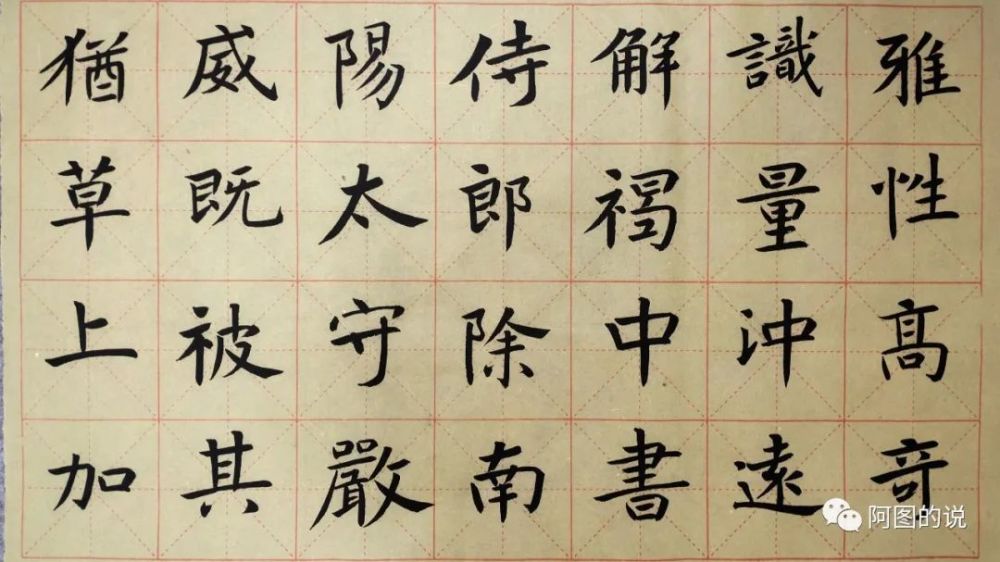 雅性髙竒
識量沖遠
解褐中書
侍郎除南
陽太守嚴
威既被其
猶草上加
阿图的说